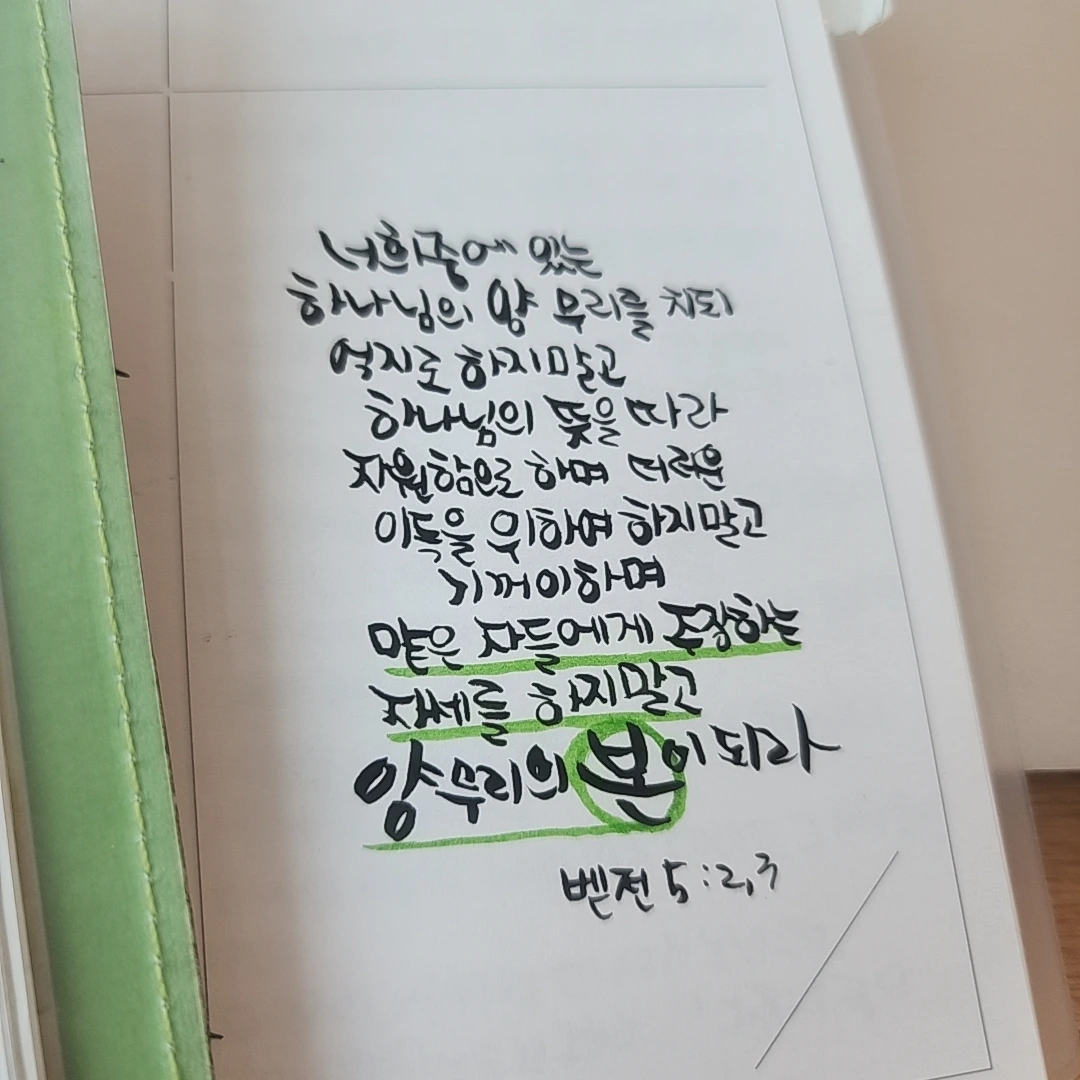 너희 중에 있는
하나님의 양 무리를 치되
억지로 하지말고
하나님의 뜻을 따라
자원함으로 하며 더러운
이득을 위하여 하지말고
기꺼이하며
맡은 자들에게 주장하는
자세를 하지말고
양무리의 본이 되라
벧전 5:2,3